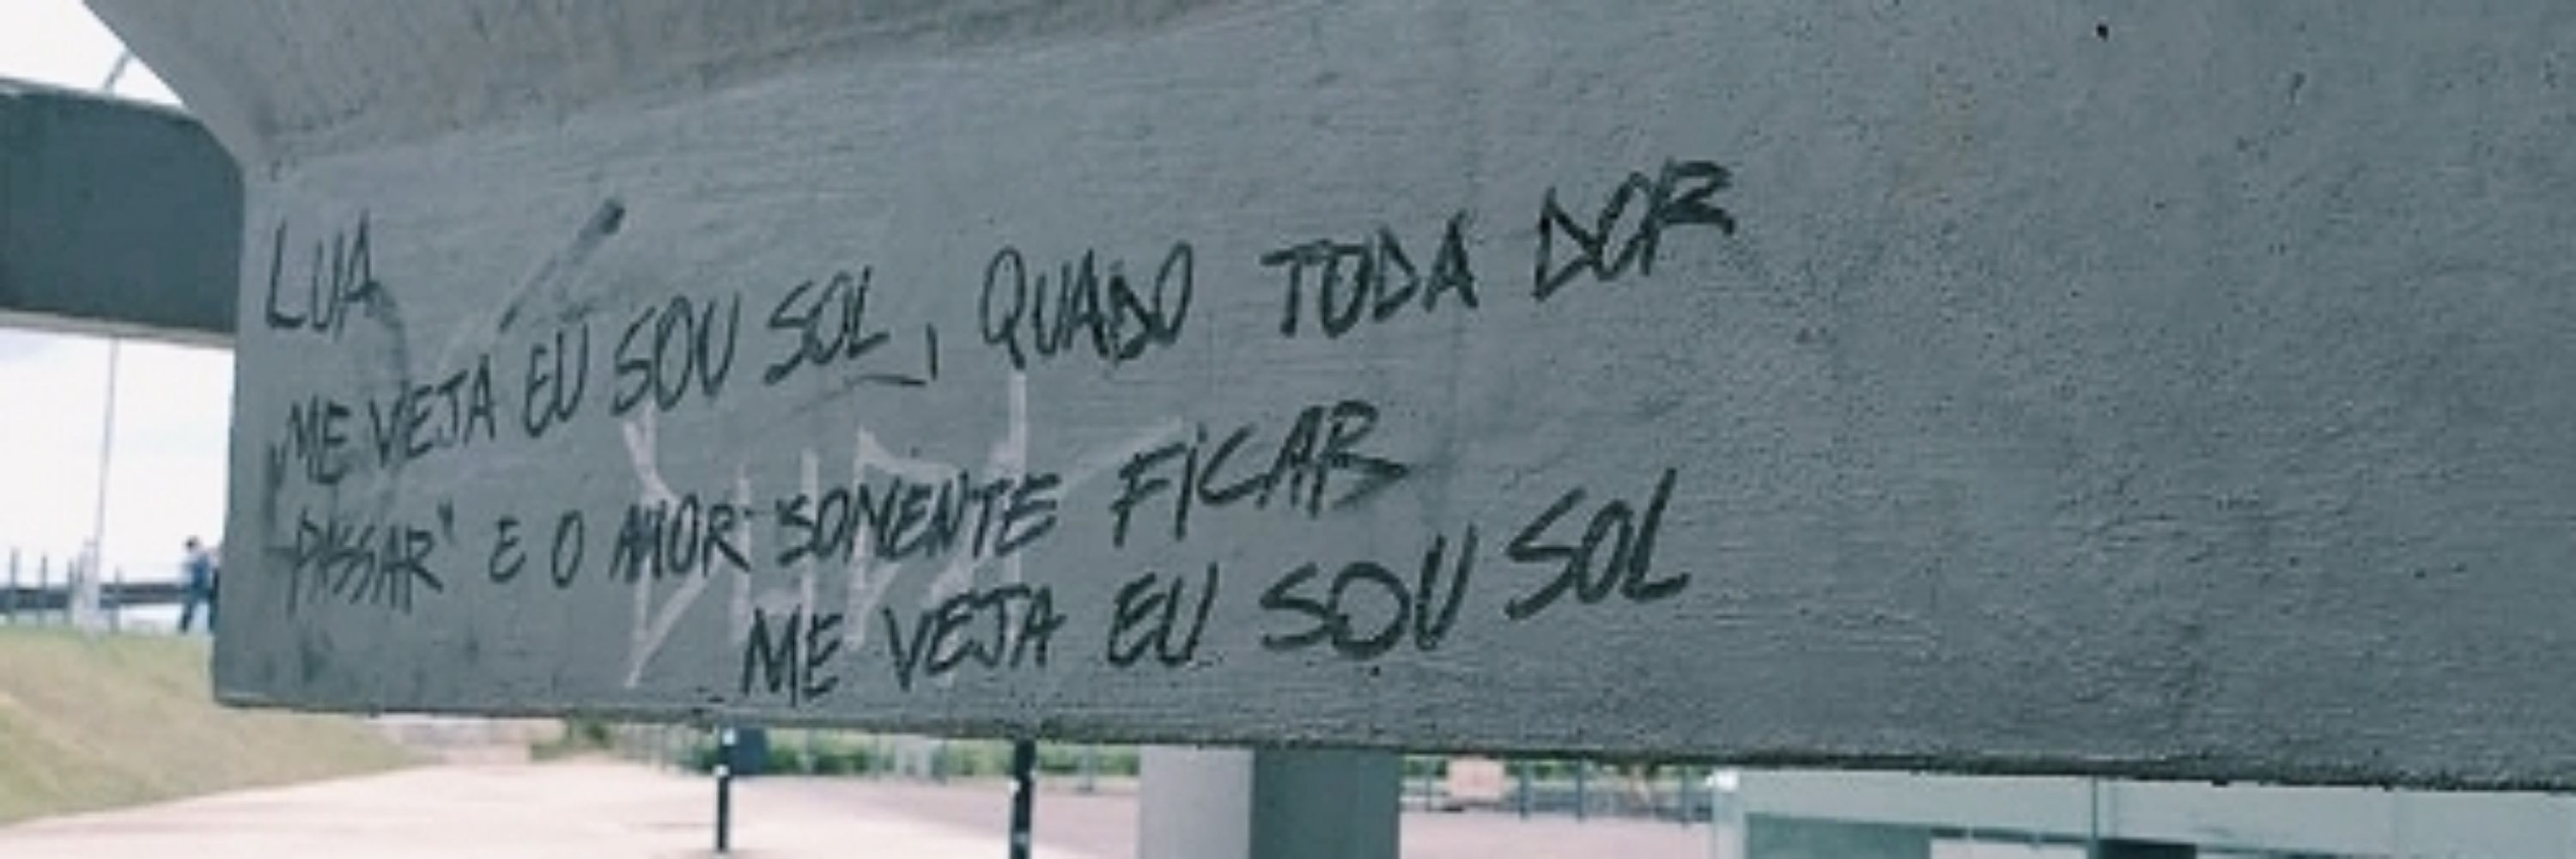 LUA
"ME VEJA EU SOU SOL, QUADO TODA DOR
PASSAR" E O AMOR SOMENTE FICAR
ME VEJA EU SOU SOL